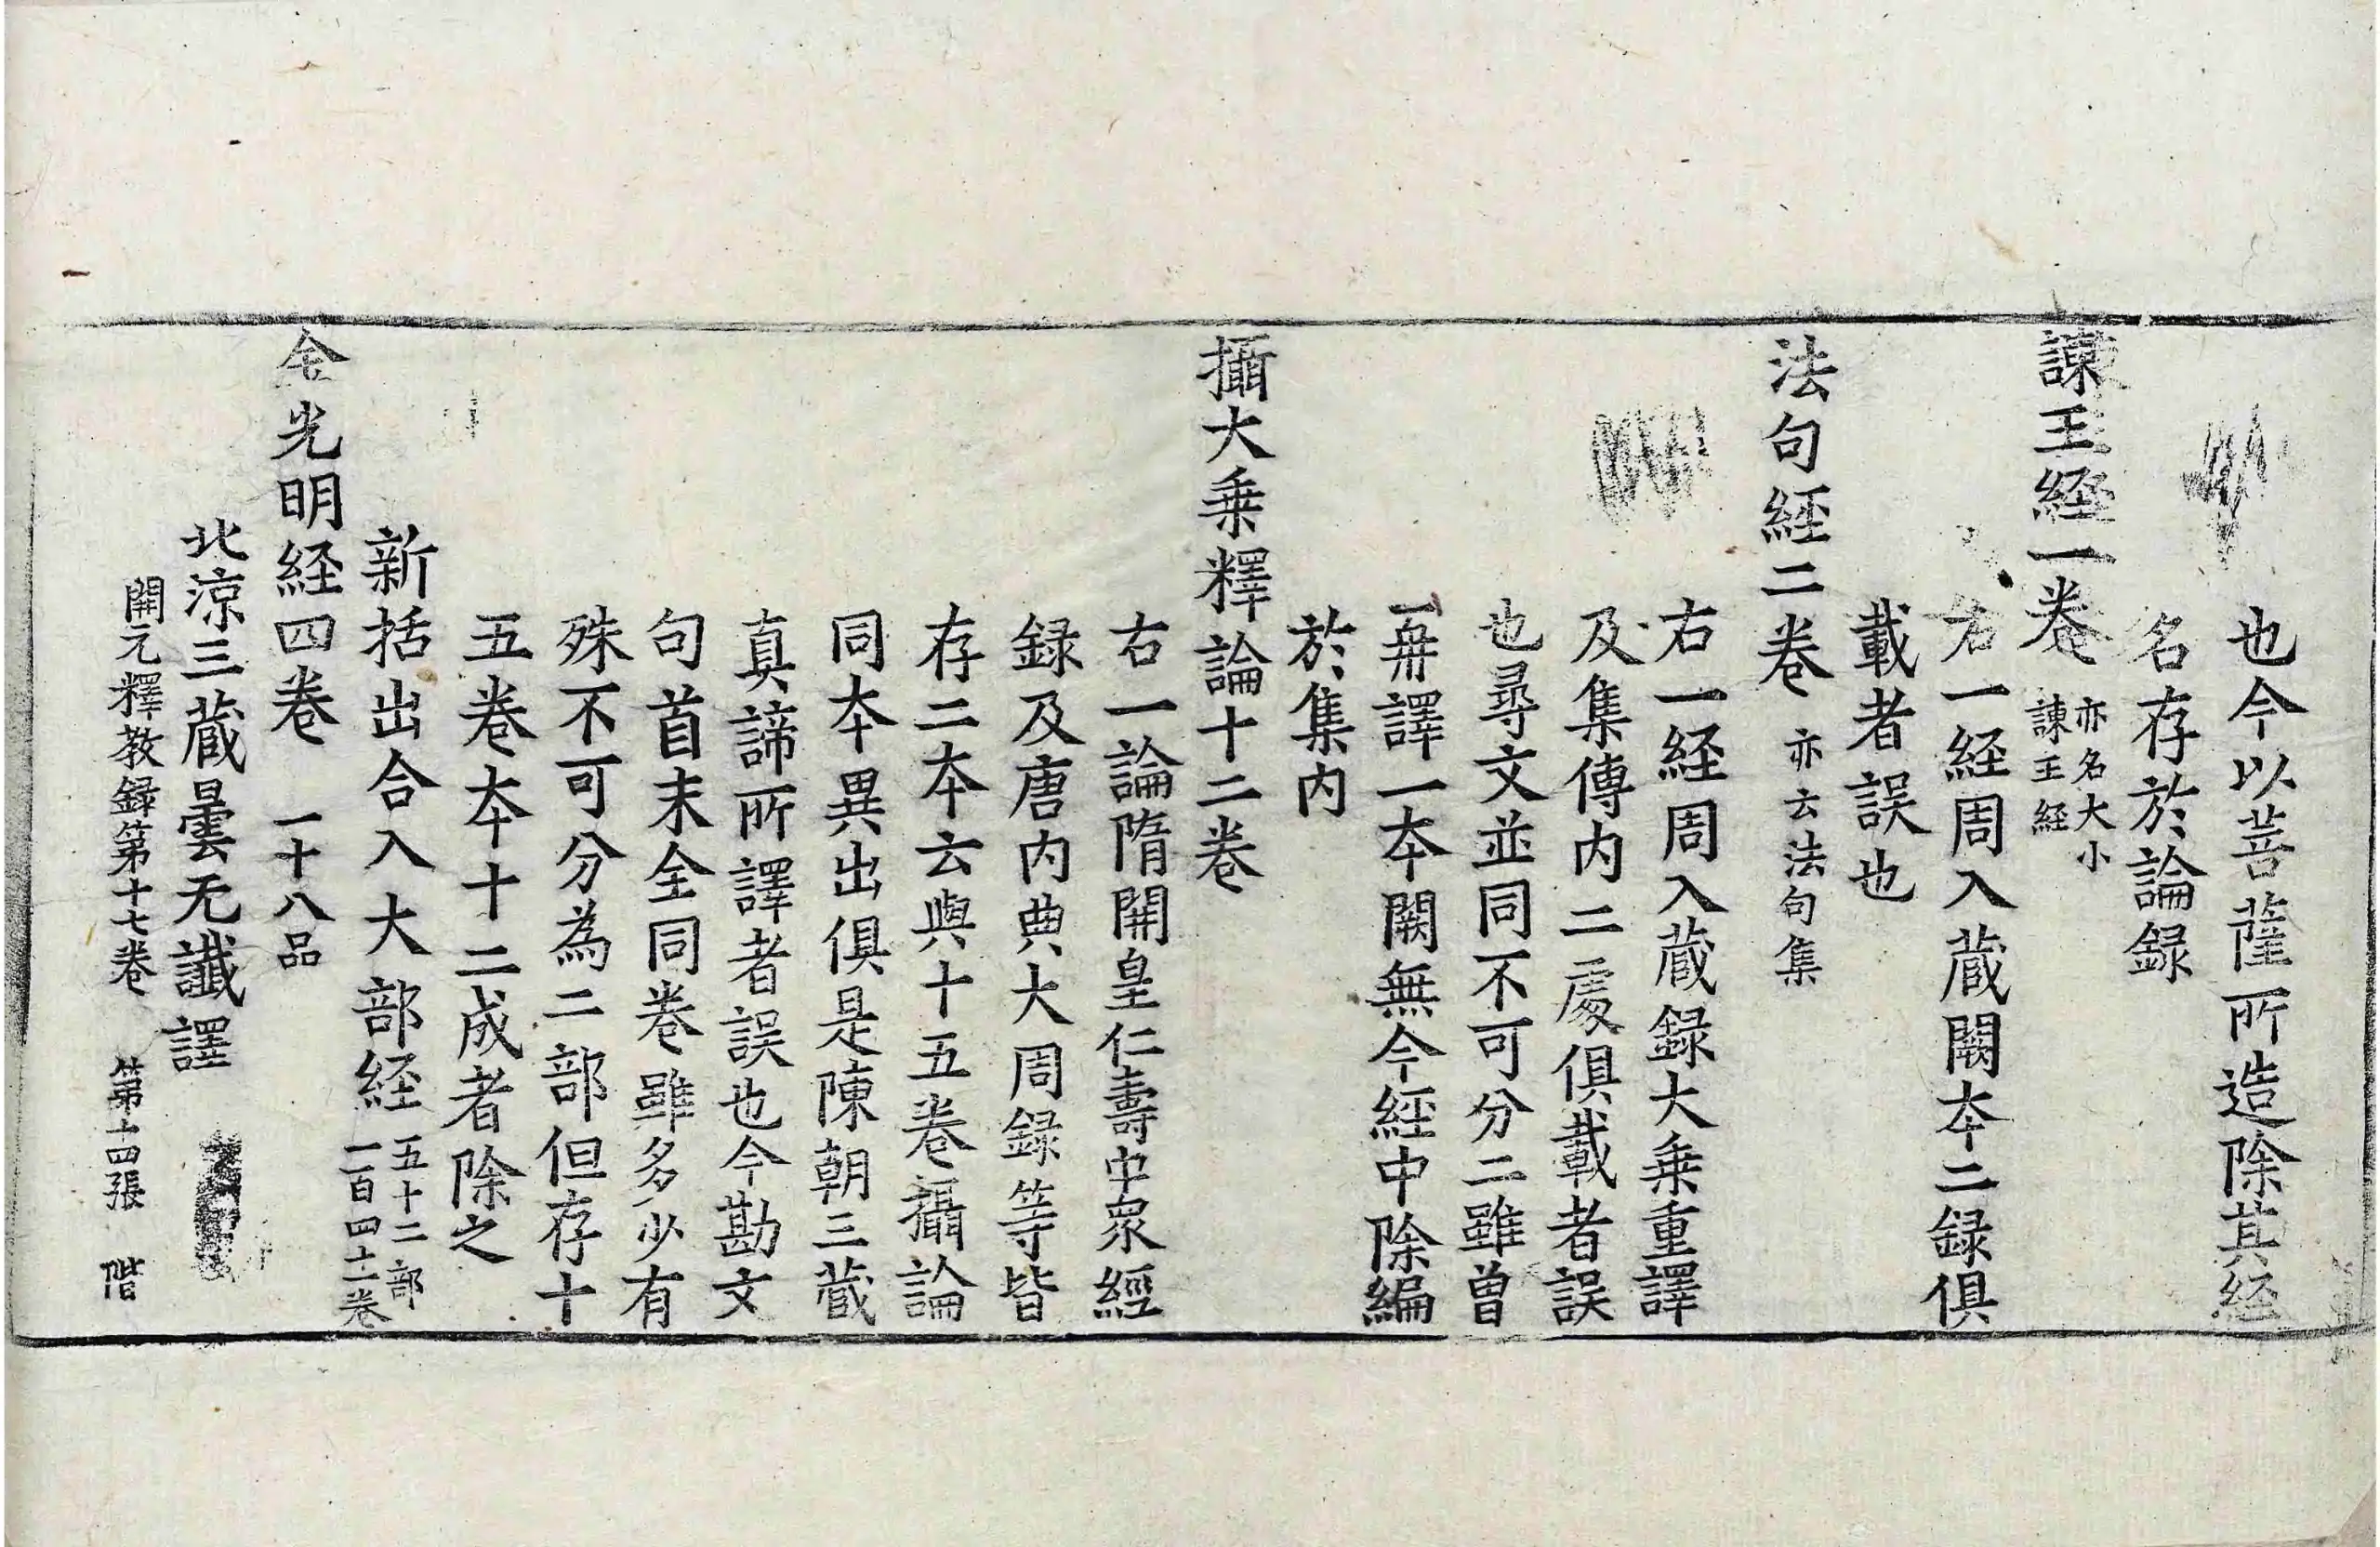 也今以菩薩所造除其経
名存於論録
諫王経一卷 亦名大小諫王経
右一経周入蔵闕本二録俱
載者誤也
法句經二卷 亦云法句集
右一経周入蔵録大乗重譯
及集傳內二處俱載者誤
也尋文並同不可分二雖曽
一毎譯一本闕無今經中除編
於集內
攝大乗釋論十二卷
右一論隋開皇仁壽中衆經
録及唐內典大周録等皆
存二本云與十五卷攝論
同本異出俱是陳朝三蔵
真諦所譯者誤也今勘文
句首末全同卷雖多少有
殊不可分為二部但存十
五卷本十二成者除之
新括出合入大部経 五十二部一百四十二卷
金光明経四卷 一十八品
北涼三蔵曇无讖譯
開元釋教録第十七卷 第十四張 階